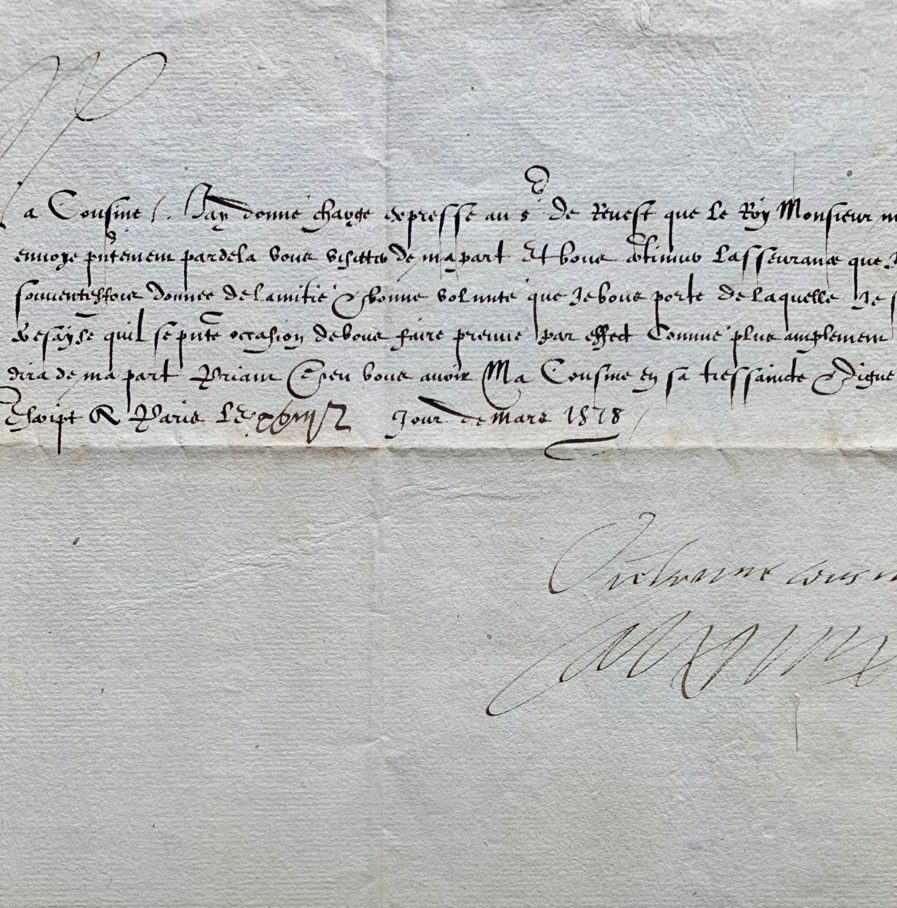 Ma Cousine, J'ay donné charge expresse au Sr De Revest que le Roy Monsieur m
envoye pntement pardela vous visitter de ma part Et vous continuer lasseurance que J
souventesfois donnee de lamitié & bonne volunté que Je vous porte de laquelle Je s
quil se pnte occasion de vous faire preuve par effect Comme plus amplement
dira de ma part Priant Dieu vous avoir Ma Cousine en sa tressaincte & digne
Escript A Paris le xviije Jour de Mars 1578
Vre bonne cousin